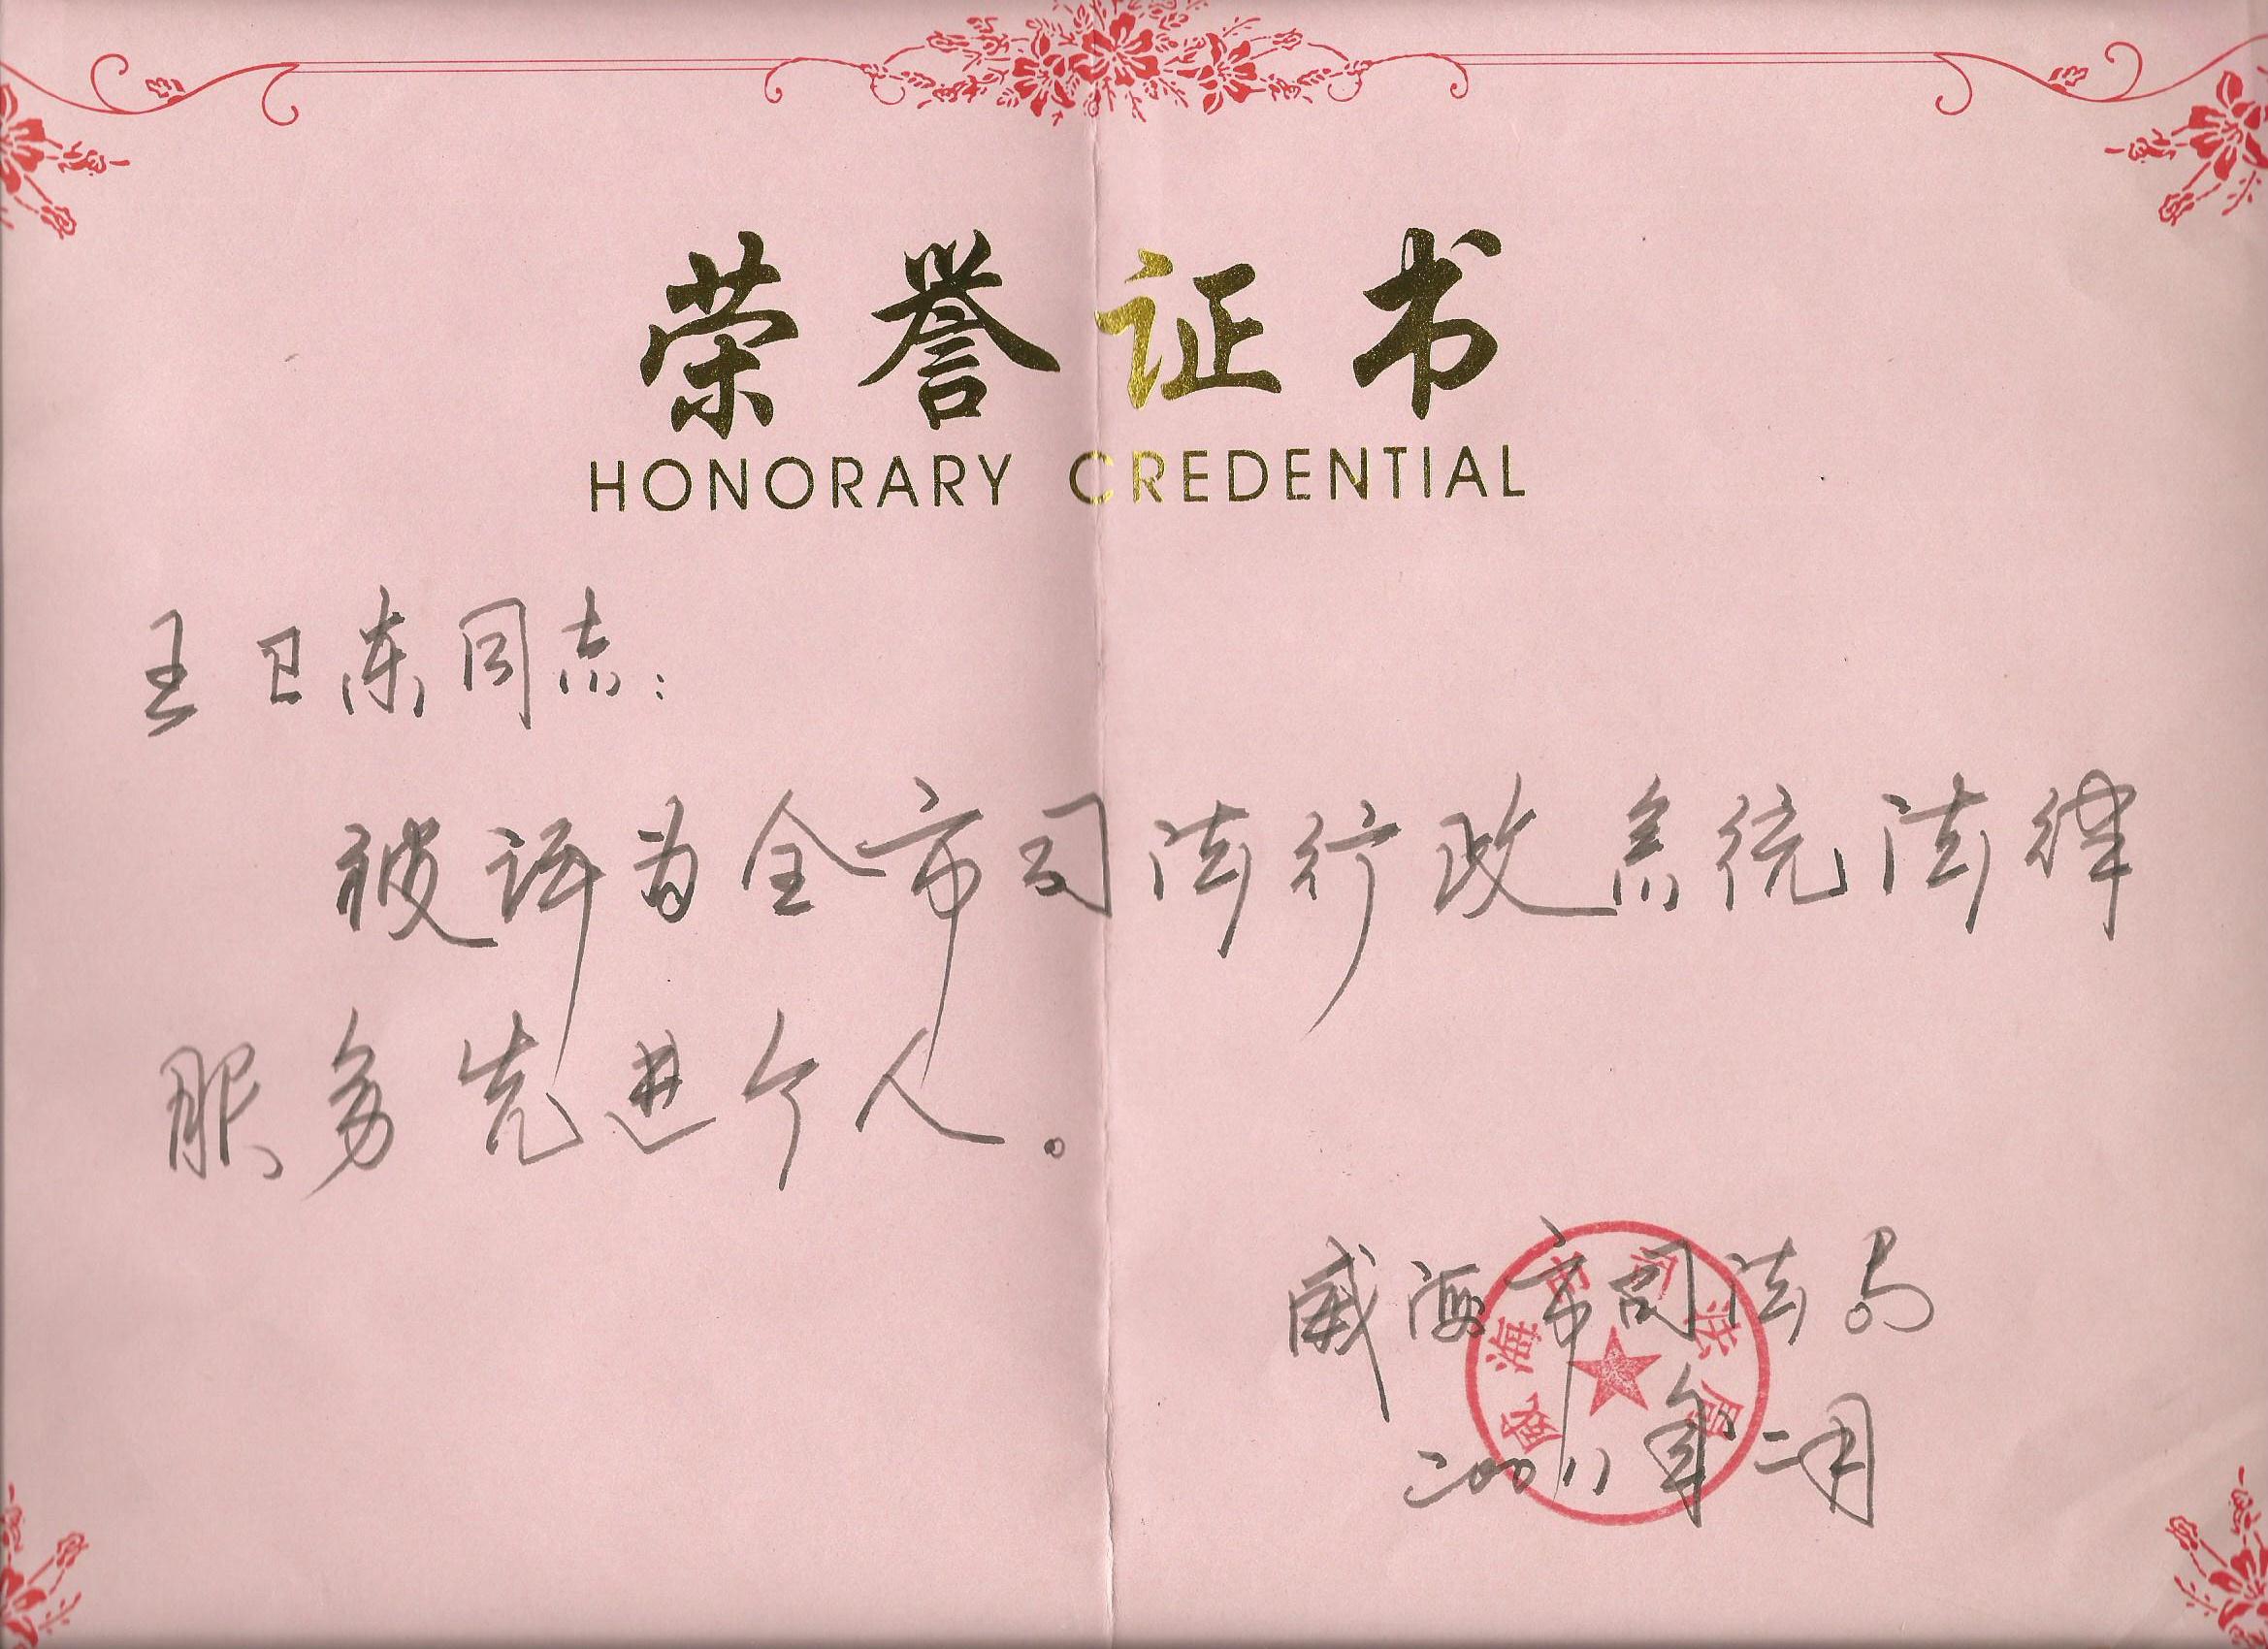 荣誉证书
HONORARY CREDENTIAL
王卫东同志：
被评为全市司法行政系统法律
服务先进个人。
威海市司法局
威海市司法局
二00八年二月